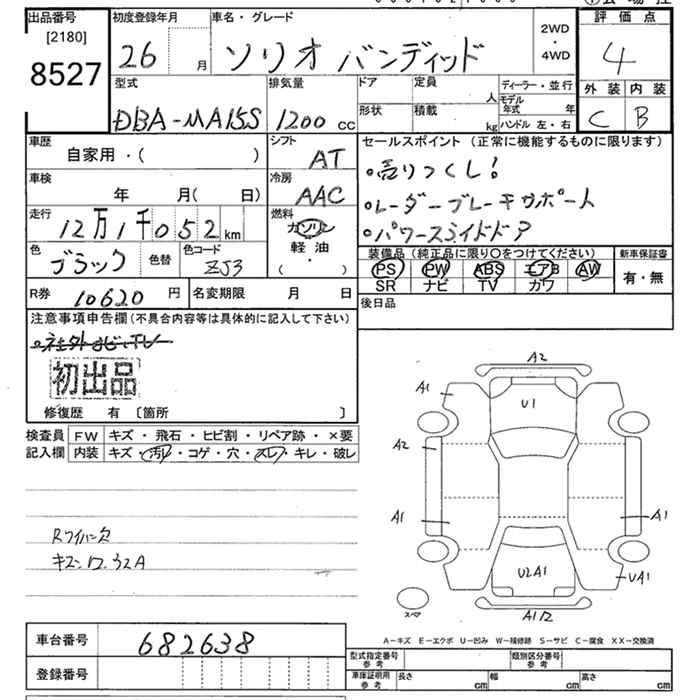 出品番号 初度登録年月 車名・グレード 評価点
[2180]
8527
26 月 ソリオ バンディッド 2WD・4WD 4
型式 排気量 ドア 定員 人 ディーラー・並行 外装 内装
DBA-MA15S 1200 cc 形状 積載 kg モデル年式 年 ハンドル 左・右 C B
車歴 シフト セールスポイント (正常に機能するものに限ります)
自家用・( ) AT
•売りつくし!
車検 冷房
年 月( 日) AAC
•レーダーブレーキサポート
走行 燃料
12万1千052km ガソリン
•パワースライドドア
色 ブラック 色替 色コード ZJ3 軽油・( )
装備品 (純正品に限り○をつけてください) 新車保証書
PS PW ABS エアB AW 有・無
SR ナビ TV カワ
R券 10620 円 名変期限 月 日 後日品
注意事項申告欄(不具合内容等は具体的に記入して下さい)
•社外ナビ・TV
初出品
修復歴 有 〔箇所 〕
検査員 FW キズ・飛石・ヒビ割・リペア跡・×要
記入欄 内装 キズ・汚レ・コゲ・穴・スレ・キレ・破レ
A2
A1 U1
A2
A1 A1
U2A1 UA1
スペア A1/2
Rワイパー欠
キズ.凹.ヨタA
A-キズ E-エクボ U-凹み W-補修跡 S-サビ C-腐食 XX-交換済
車台番号 682638 型式指定番号 参考 類別区分番号 参考
登録番号 車庫証明用 参考 長さ cm 幅 cm 高さ cm